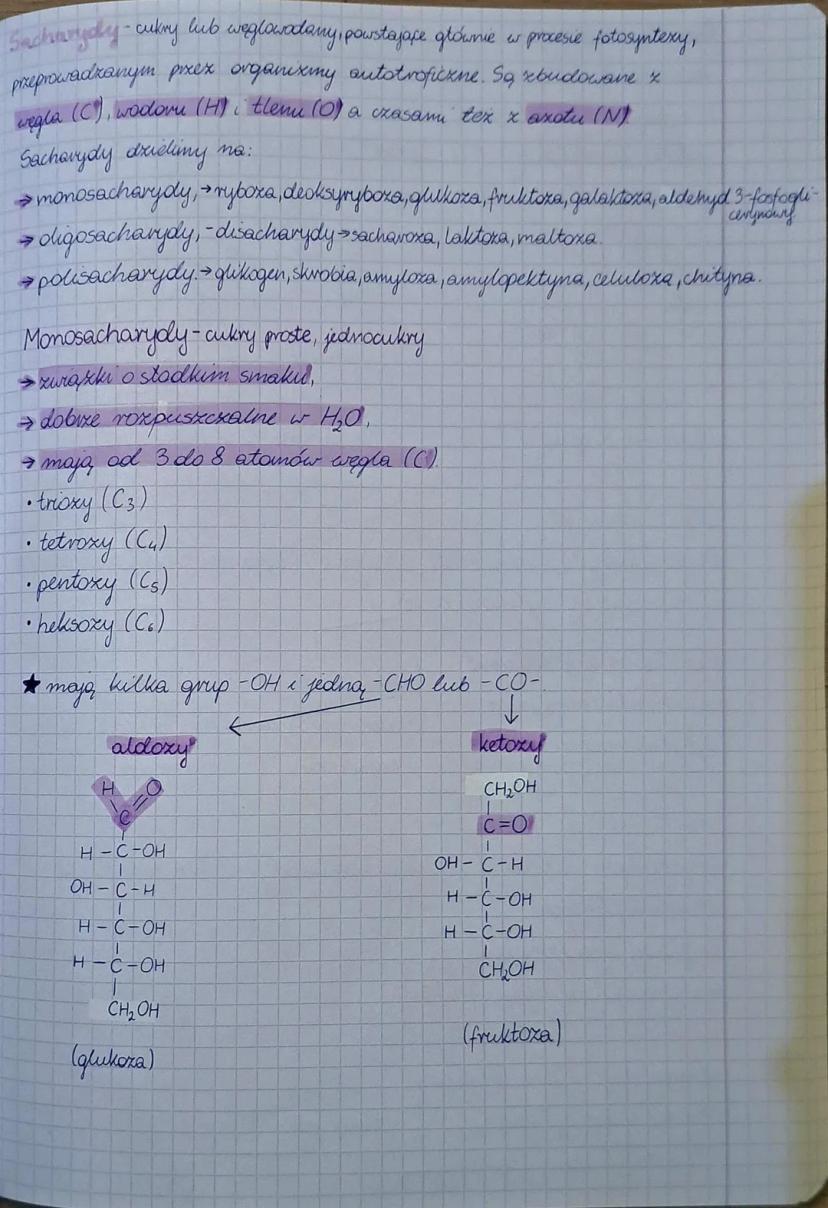 Sacharydy - cukry lub węglowodany, powstające głównie w procesie fotosyntezy,
przeprowadzanym przez organizmy autotroficzne. Są zbudowane z
węgla (C), wodoru (H) i tlenu (O) a czasami też z azotu (N)
Sacharydy dzielimy na:
→ monosacharydy, → ryboza, deoksyryboza, glukoza, fruktoza, galaktoza, aldehyd 3-fosfogli-
cerynowy
→ oligosacharydy, - disacharydy → sacharoza, laktoza, maltoza.
→ polisacharydy. → glikogen, skrobia, amyloza, amylopektyna, celuloza, chityna.
Monosacharydy - cukry proste, jednocukry
→ związki o słodkim smaku,
→ dobrze rozpuszczalne w H₂O,
→ mają od 3 do 8 atomów węgla (C).
• triozy (C₃)
• tetrozy (C₄)
• pentozy (C₅)
• heksozy (C₆)
★ mają kilka grup -OH i jedną -CHO lub -CO-.
aldozy
H O
C
H - C - OH
OH - C - H
H - C - OH
H - C - OH
CH₂OH
(glukoza)
ketozy
CH₂OH
C = O
OH - C - H
H - C - OH
H - C - OH
CH₂OH
(fruktoza)